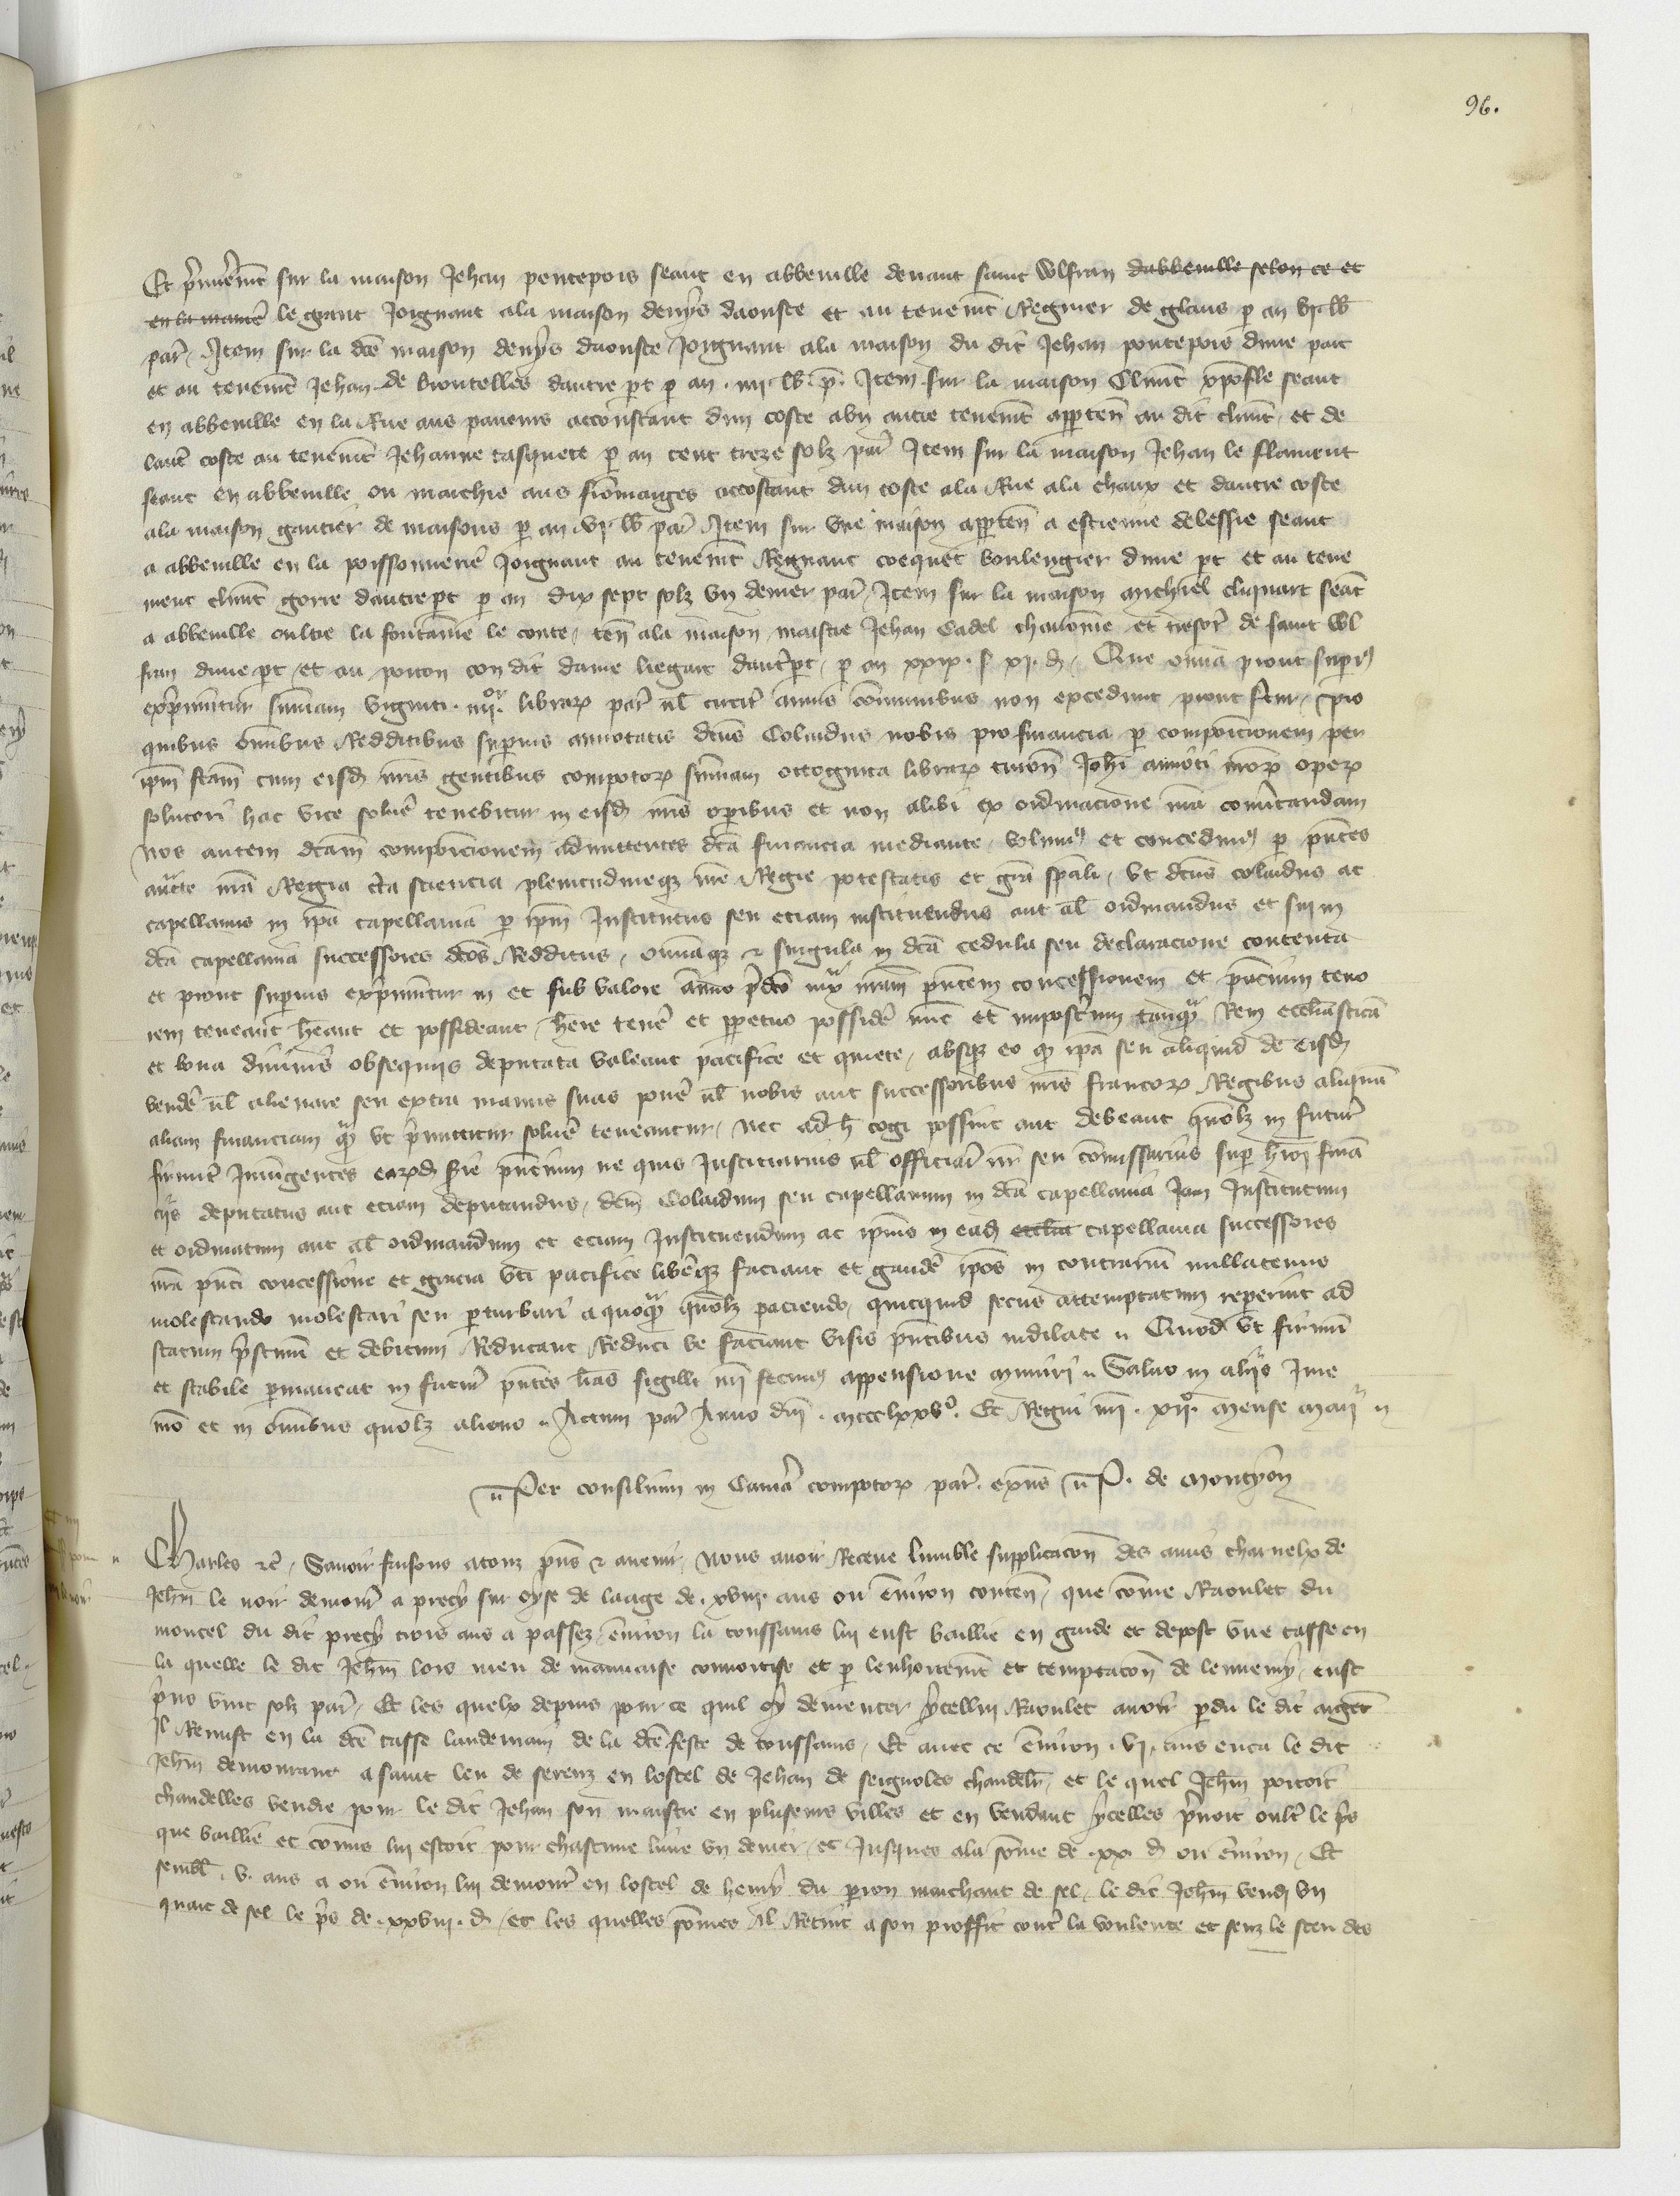 96.
Et p̃mierem̃t sur la maison Jehan pentepois seant en abbeuille deuant saint Wlfran dabbeuille selon ce et
en la manie͂ le grant Joignant ala maison denys daouste et au tenem̃t Regnier de glans p an vi lb
par̃. Item sur la dc̃e maison denys daouste Joignant ala maison du dit Jehan pontepois dune part
et au tenem̃t Jehan de brontelles dautre pt p an. iiij. lb. p̃. Item sur la maison Clim̃t xp̃ofle seant
en abbeuille en la Rue aus pareurs accoustant dun coste a vn autre tenem̃t appten̄ au dit clim̃t, et de
laut̃ coste au tenem̃t Jehanne tasquete p an cent treze solz par̃ Item sur la maison Jehan le flament
seant en abbeuille ou marchie aus fromaiges accostant dun coste ala Rue ala chaux et dautre coste
ala maison gautier de maisons p an. vi. lb par̃ Item sur vne maison appten̄ a estienne delessie seant
a abbeuille en la poissonnerie͂ Joignant au tenem̃t Regnaut coequet boulengier dune pt et au tene
ment clim̃t gorre dautre pt p an dix sept solz vn denier par̃, Item sur la maison michiel cliquart seãt
a abbeuille oultre la fontaine le conte, ten̄ ala maison maistre Jehan Cadel chanoine et tresor̃ de saint Wl
fran dune pt, et au porton con dit dame liegart daut̃ pt, p an xxix. s. xi. d, Que om̃ia prout supius
exp̃rimũtur sum̃am viginti. iiij.or libraꝝ par̃ ul̃ circit̃ annis com̃unibus non excedunt prout fertur, Pro
quibus om̃ibus Redditibus supius annotatis dc̃us Colaidus nobis pro financia p compõicionem per
ip̃m fc̃am cum eisd̃ nr̃is gentibus compotoꝝ sum̃am octoginta libraꝝ turon̄ Joh̃i amioti nr̃oꝝ opeꝝ
solutori hac vice solue͂ tenebitur in eisd̃ nr̃is opibus et non alibi ex ordinacione nr̃a conũtandam
Nos autem dc̃am compõicionem admittentes dc̃a financia mediante, volum̃ et concedim̃ p pñtes
auc̃te nr̃a Regia c̃ta sciencia plenitudineqꝫ nr̃e Regie potestatis et gr̃a sp̃ali, vt dc̃us colaidus ac
capellanus in ip̃a capellania p ip̃m Institutus seu eciam instituendus aut al̃ ordinandus et sui in
dc̃a capellania successores dc̃os Redditus, om̃iaqꝫ et singula in dc̃a cedula seu declaracione contenta
et prout supius exp̃rimũtur in et sub valore annuo p̃dc̃o iux nr̃am pñtem concessionem et pñcium teno
rem teneant heãnt et possideant, here tene͂ et ppetuo posside͂ nũc et imposterum tanq̃ Rem eccl̃iasticã
et bona diuinis obsequiis deputata valeant pacifice et quiete, absqꝫ eo qꝫ ip̃a seu aliquid de eisd̃
vende͂ ul̃ alienare seu extra manus suas pone͂ ul̃ nobis aut successoribus nr̃is francoꝝ Regibus aliquã
aliam financiam q̃ vt p̃mittitur solue͂ teneantur, nec ad h̃ cogi possint aut debeant quõlꝫ in futur̃
firmit̃ Iniũgentes eaꝝd̃ s̃ie pñcium ne quis Justiciarius ul̃ officiar̃ nr̃ seu com̃issarius sup h̃oi finã
ciis deputatus aut eciam deputandus, dc̃m Colaidum seu capellanum in dc̃a capellania Jam Institutum
et ordinatum aut al̃ ordinandum et eciam Instituendum ac ipius in ead̃ eccl̃ia capellania successores
nr̃a pñti concessione et gracia vti pacifice libe͂qꝫ faciant et gaude͂ ip̃os in contrarium nullatenus
molestando molestari seu pturbari a quoq̃ quõlꝫ paciendo, quicquid secus attemptatum reperint ad
statum p̃stinũ et debitum Reducant Reduci ve faciant visis pñtibus indilate. Quod vt firmũ
et stabile pmaneat in futur̃ pñtes lr̃as sigilli nr̃i fecim̃ appensione muniri. Saluo in aliis Jure
nr̃o et in om̃ibus quolꝫ alieno. Actum par̃ Anno dn̄i. mccclxxvº. Et Regni nr̃i. xijº. Mense Maij.
Per consilium in Cam̃a compotoꝝ par̃. exiñs P. de Montyon
Charles etc̃, Sauoir faisons atouz pñs et auenir, Nous auoir Receue lumble supplicacõn des amis charnelx de
Jeh̃n le noir demour̃ a precy sur oyse de laage de. xviij. ans ou enuiron conten̄, que com̃e Raoulet du
moncel du dit precy trois ans a passez, enuiron la toussains lui eust baillie en garde et depost vne tasse en
la quelle le dit Jeh̃n lors meu de mauuaise conuoitise et p lenhortem̃t et temptacõn de lennemy, eust
p̃ns vint solz par̃, Et les quelx depuis pour ce quil oy dementer ycellui Raoulet auoir pdu le dit arget̃
Il Remist en la dc̃e tasse landemain de la dc̃e feste de toussains, Et auec ce enuiron. vi. ans enca le dit
Jeh̃n demourant a saint leu de serenz en lostel de Jehan de seignoles chandel̃r, et le quel Jeh̃n portoit
chandelles vendre pour le dit Jehan son maistre en pluseurs villes et en vendant ycelles p̃noit oult̃ le p̃s
que baillié et com̃is lui estoit pour chascune liure vn denier, et Jusques ala som̃e de. xx. d ou enuiron, Et
sembl̃. v. ans a ou enuiron lui demour̃ en lostel de henry du perron marchant de sel, le dit Jeh̃n vendi vn
quart de sel le p̃s de. xxviij. d, et les quelles som̃es Il Retint a son proffit cont̃ la voulente et senz le sceu des